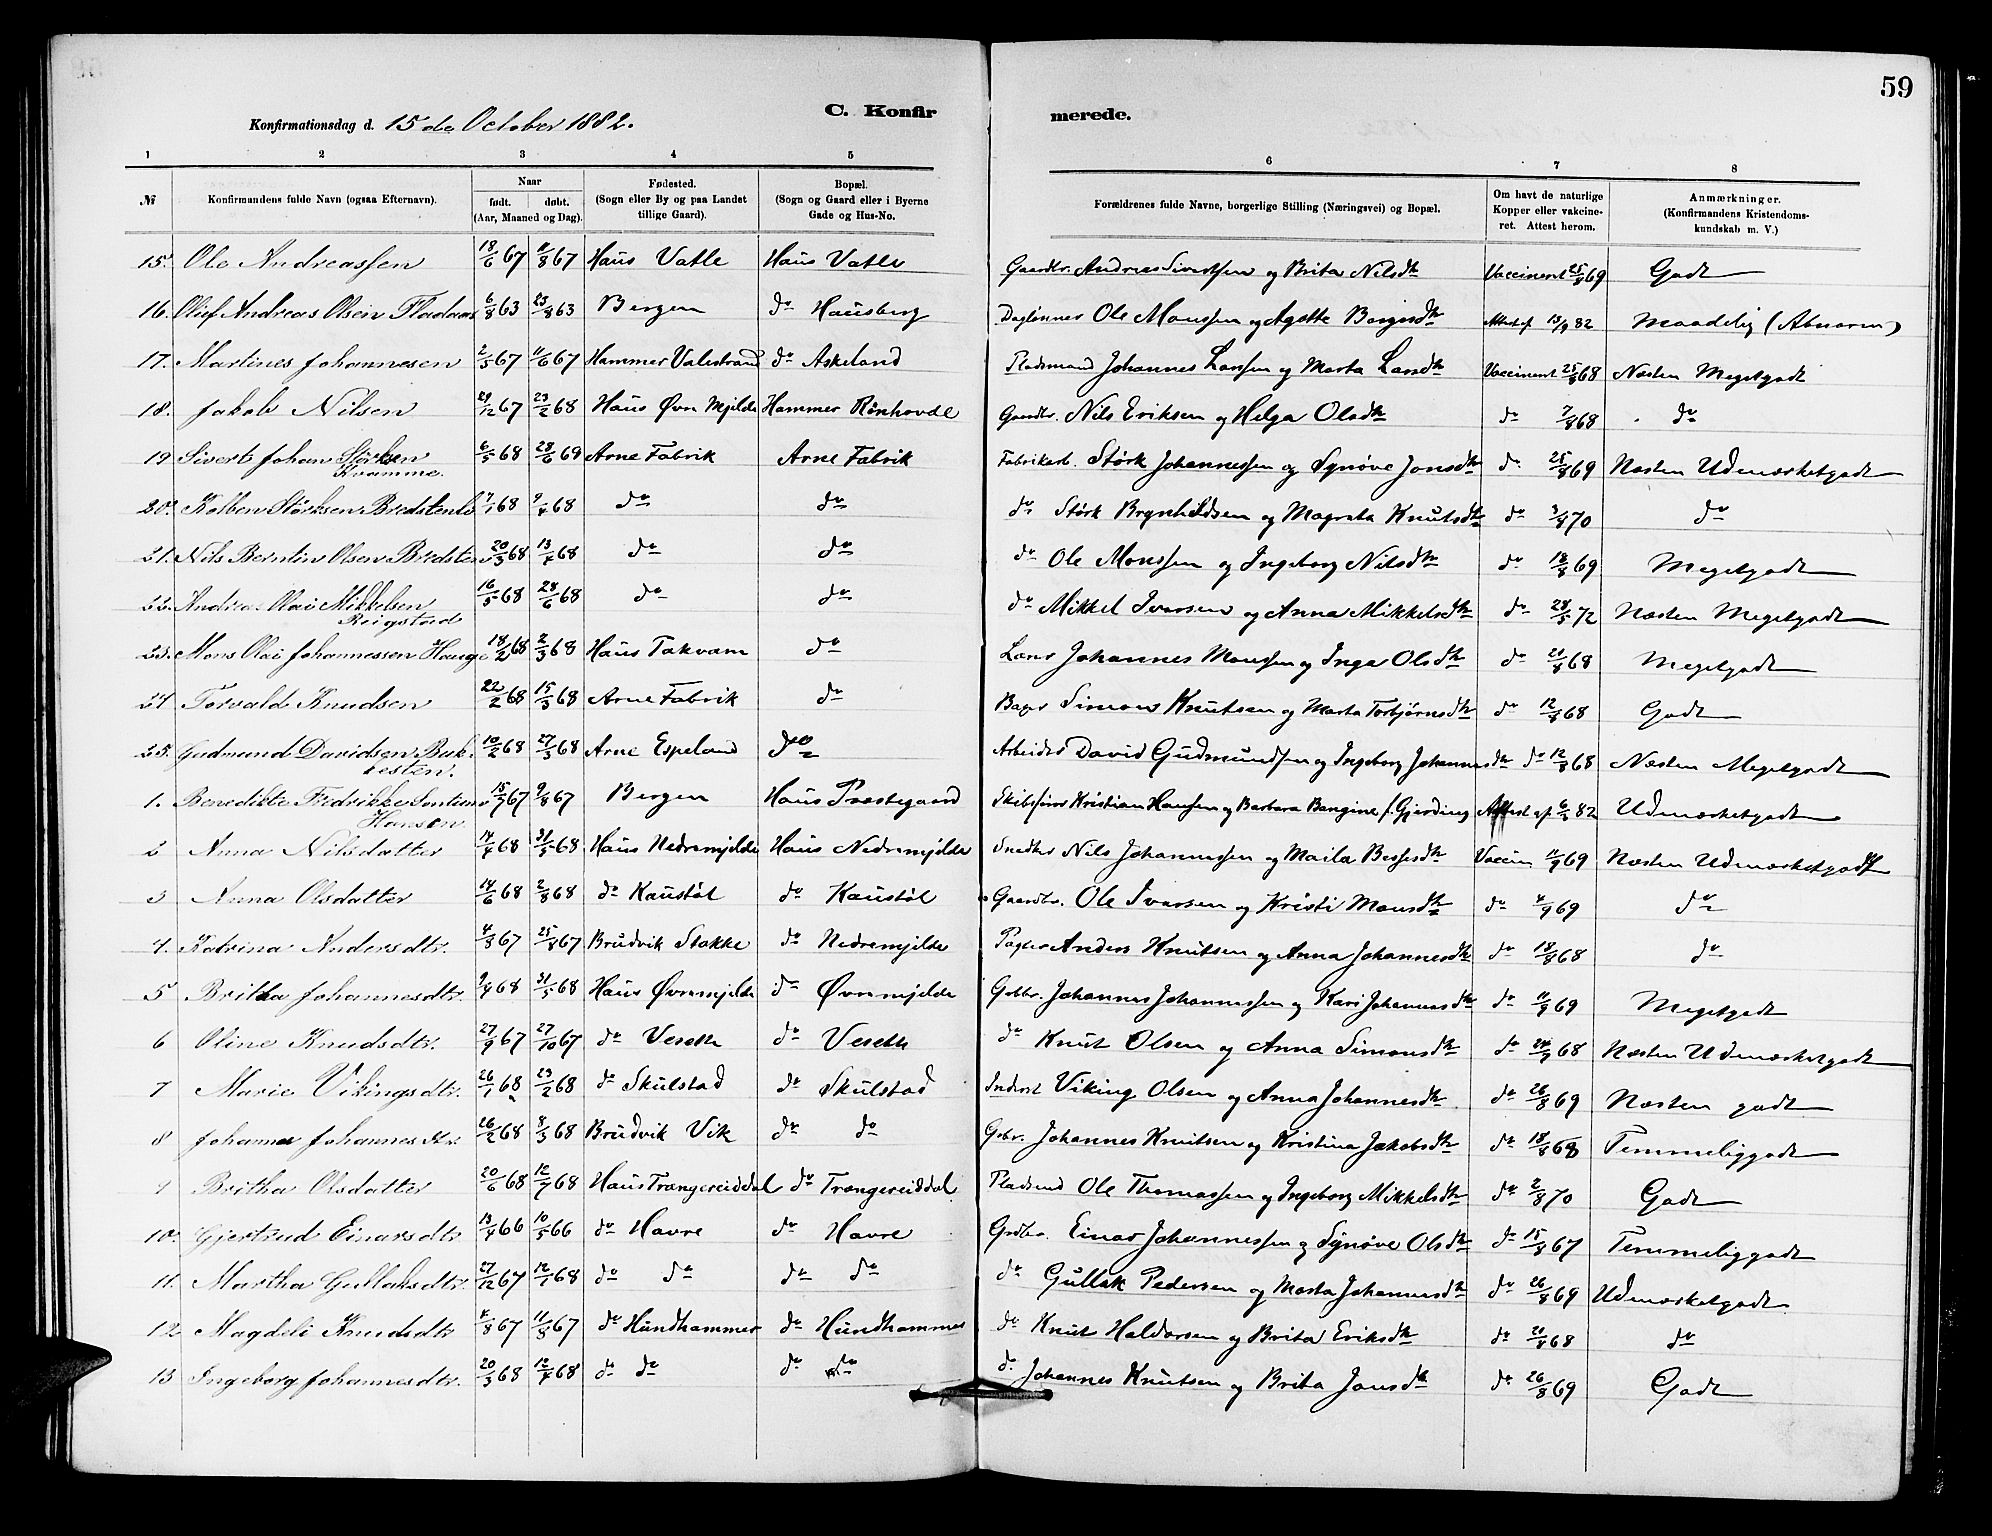 59
C. Konfir merede.
Konfirmationsdag d. 15de October 1882.
1 2 3 4 5 6 7 8
№ Konfirmandens fulde Navn (ogsaa Efternavn). Naar født. døbt. (Aar, Maaned og Dag). Fødested. (Sogn eller By og paa Landet tillige Gaard). Bopæl. (Sogn og Gaard eller i Byerne Gade og Hus-No. Forældrenes fulde Navne, borgerlige Stilling (Næringsvei) og Bopæl. Om havt de naturlige Kopper eller vakcineret. Attest herom. Anmærkninger. (Konfirmandens Kristendomskundskab m. V.)
15. Ole Andreassen 18/6 67 11/8 67 Haus Vatle Haus Vatle Gaardbr. Andreas Sivertsen og Brita Nilsdtr Vaccineret 25/8 69 Godt
16. Oluf Andreas Olsen 6/8 63 23/8 63 Bergen do Hausberg Daglønner Ole Monssen og Agatte Borgesdtr Attest af 13/9 82 Maadelig (Abnorm)
17. Martines Johannesen 2/5 67 11/6 67 Hammer Valestrand do Askeland Pladsmand Johannes Larssen og Marta Larsdtr Vaccineret 25/8 68 Næsten Megetgodt
18. Jakob Nilsen 29/12 67 23/2 68 Haus Øvre Mjelde Hammer Rønhovde Gaardbr. Nils Eriksen og Helga Olsdtr do 7/8 68 do
19 Sivert Johan Størksen Kvamme. 6/5 68 28/6 69 Arne Fabrik Arne Fabrik Fabrikarb. Størk Johannessen og Synøve Jonsdtr do 25/8 69 Næsten Udmærketgodt
20. Kolben Størksen Bredsten 7/1 68 9/4 68 do do do Størk Brynhildsen og Magreta Knutsdtr do 3/8 70 do
21. Nils Berntin Olsen Bredsten 20/3 68 13/4 68 do do do Ole Monssen og Ingeborg Nilsdtr do 18/8 69 Megetgodt
22. Andreas Olai Mikkelsen Reigstad 16/5 68 28/6 68 do do do Mikkel Ivarsen og Anna Mikkelsdtr do 28/5 72 Næsten Megetgodt
23. Mons Olai Johannessen Hauge 18/2 68 2/3 68 Haus Takvam do Lærer Johannes Monssen og Inga Olsdtr do 21/8 68 Megetgodt
24 Torvald Knudsen 22/2 68 15/3 68 Arne Fabrik do Bager Simon Knutsen og Marta Torbjørnsdtr do 12/8 68 Godt
25. Gudmund Davidsen 10/2 68 27/3 68 Arne Espeland do Arbeider David Gudmundsen og Ingeborg Johannesdtr do 12/8 68 Næsten Megetgodt
1. Benedikte Fredrikke Hansen. 15/7 67 9/8 67 Bergen Haus Præstegaard Skibsfører Kristian Hanssen og Barbara Bangine f. Gjerding Attest af 6/5 82 Udmærketgodt
2 Anna Nilsdatter 14/4 68 31/5 68 Haus Nedremjelde Haus Nedremjelde Snedker Nils Johannessen og Maila Bessesdtr Vaccin 11/9 69 Næsten Udmærketgodt
3 Anna Olsdatter 14/6 68 2/8 68 do Haustøl do Haustøl Gaardbr. Ole Ivarsen og Kristi Monsdtr do 4/9 69 do
4. Katrina Andersdtr. 4/8 67 25/8 67 Brudvik Stokke do Nedremjelde Pagter Anders Knutsen og Anna Johannesdtr do 18/8 68 do
5 Britha Johannesdtr. 9/4 68 31/5 68 Haus Øvremjelde do Øvremjelde Gdbr. Johannes Johannessen og Kari Johannesdtr do 11/9 69 Megetgodt
6 Oline Knudsdtr. 27/9 67 27/10 67 do Veseth do Veseth do Knut Olsen og Anna Simonsdtr do 24/9 68 Næsten Udmærketgodt
7 Marie Vikingsdtr. 26/1 68 23/2 68 do Skulstad do Skulstad Inderst Viking Olsen og Anna Johannesdtr do 26/8 69 Næsten godt
8 Johanna Johannesdtr. 26/2 68 8/3 68 Brudvik Vik do do Gbr. Johannes Knutsen og Kristina Jakobsdtr do 18/8 68 Temmeliggodt
9 Britha Olsdatter 20/6 68 12/7 68 Haus Trængereiddal do Trængereiddal Pladsmd Ole Thomassen og Ingeborg Mikkelsdtr do 2/8 70 Godt
10. Gjertrud Einarsdtr 13/4 66 10/5 66 do Havre do Havre Grdbr. Einar Johannessen og Synøve Olsdtr do 15/8 67 Temmeliggodt
11. Martha Gullaksdtr 27/12 67 12/1 68 do do do do do Gullak Pedersen og Marta Johannesdtr do 26/8 69 Udmærketgodt
12 Magdeli Knudsdtr 4/8 67 11/8 67 do Hundhammer do Hundhammer do Knut Haldorsen og Brita Eriksdtr do 21/8 68 do
13 Ingeborg Johannesdtr. 20/3 68 12/4 68 do do do do do Johannes Knutsen og Brita Jonsdtr do 26/8 69 Godt